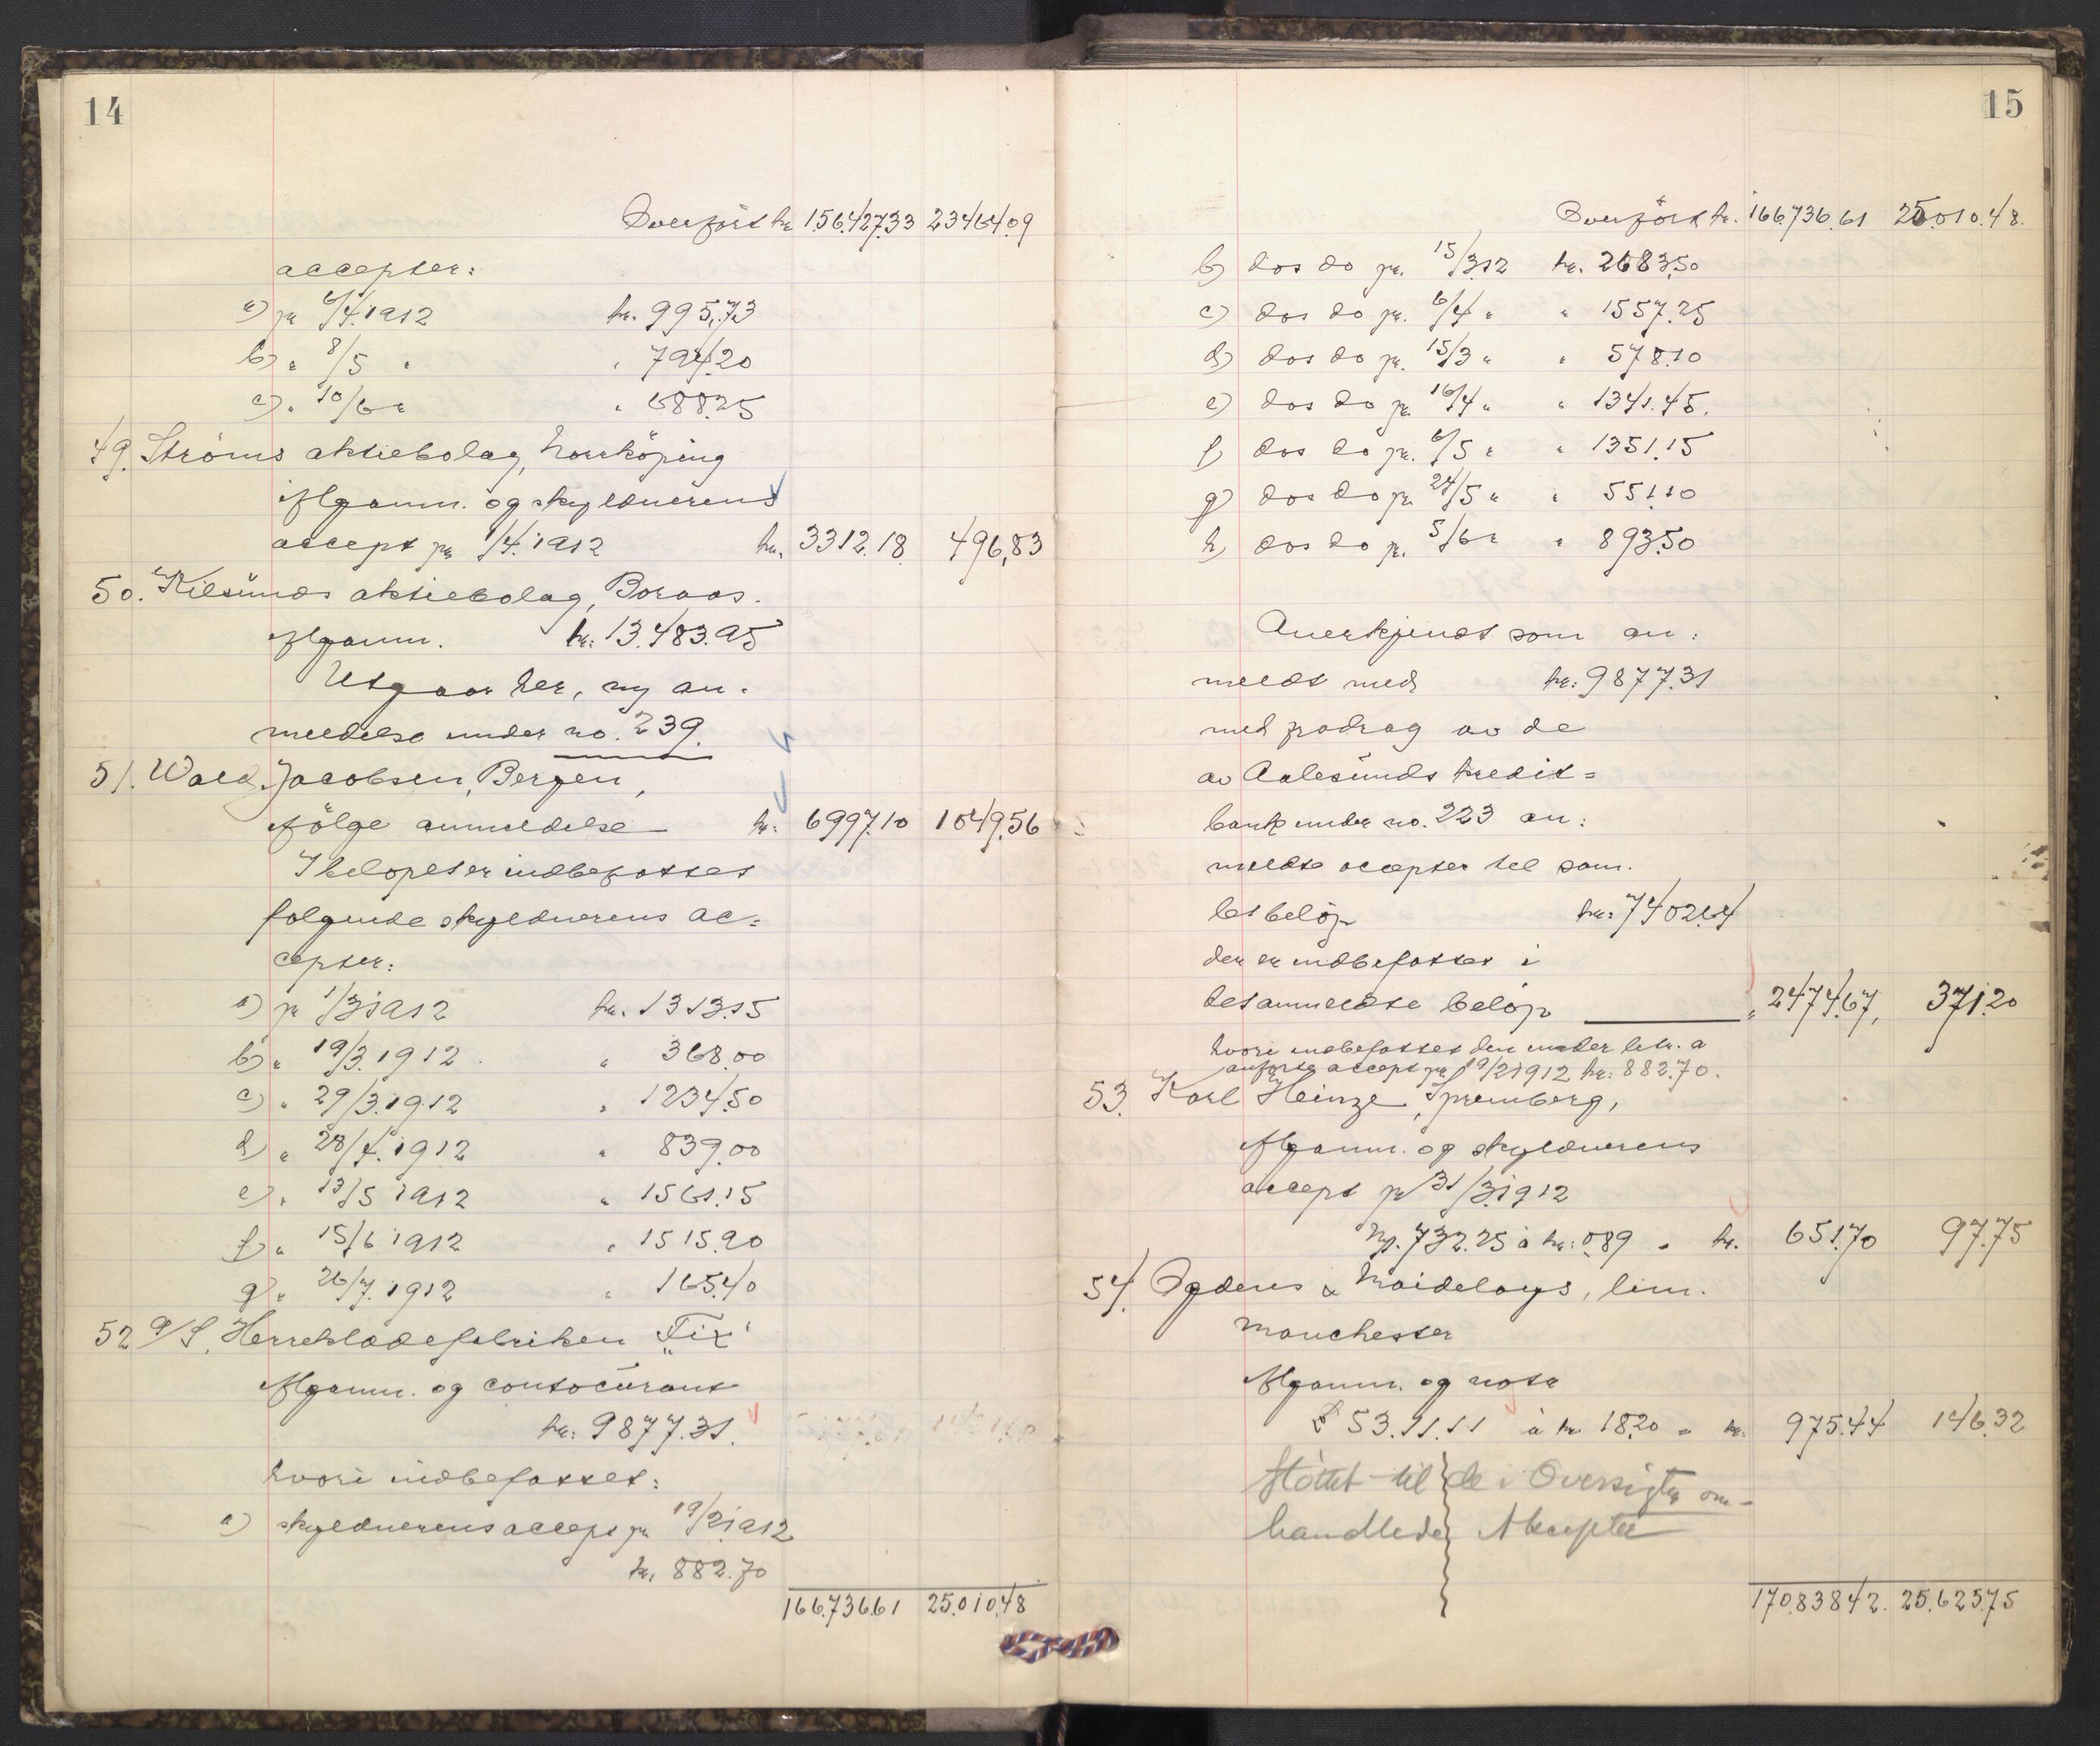 14
Overført kr. 156.427.33 23464.09
accepter:
a) pr 6/4. 1912 kr. 995,73
b) " 8/5 " " 794.20
c) " 10/6 " " 688.25
49. Ströms aktiebolag, Norrköping
Ifl. anm. og skyldnerens
accept pr 1/4. 1912 kr. 3312.18 496,83
50. Kilsunds aktiebolag, Boraas.
Ifl. anm. kr. 13.483.95
Utgaar her, ny an-
meldelse under no. 239.
51. Wald. Jacobsen, Bergen,
Ifölge anmeldelse kr: 6997.10 1049.56
I beløpet er indbefattet
følgende skyldnerens ac-
cepter:
a) pr 1/3 1912 kr. 1313.15
b) " 19/3. 1912 " 368.00
c) " 29/3. 1912 " 1234.50
d) " 28/4. 1912 " 839.00
e) " 13/5 1912 " 1561.15
f) " 15/6 1912 " 1515.90
g) " 26/7. 1912 " 165.40
52 A/S. Herreklædefabriken „Fix"
Ifl. anm. og contocurant
kr: 9877.31.
hvori indbefattet:
a) skyldnerens accept pr 19/2 1912
kr. 882.70
166.736.61 25.010.48
15
Overført kr. 166.736.61 25.010.48.
b) dos do pr. 15/3 12 kr. 2683.50
c) dos do pr. 6/4 " " 1557.25
d) dos do pr. 15/3 " " 578.10
e) dos do pr 16/4 " " 1341.45.
f) dos do pr. 6/5 " " 1351.15
g) dos do pr 24/5 " " 551.10
h) dos do pr. 5/6 " " 893.50
Anerkjendt som an-
meldt med kr: 9877.31
med fradrag av de
av Aalesunds kredit=
bank under no. 223 an-
meldte accepter til sam-
let beløp kr: 7402.64
der er indbefattet i
det anmeldte beløp " 2474.67, 371.20
hvori indbefattet den under litr. a
anførte accept pr 19/2 1912 kr: 882.70.
53. Karl Heinze, Spremberg,
Ifl. anm. og skyldnerens
accept pr 31/3. 1912
Mk. 732.25 à kr: 0.89 = kr. 651.70 97.75
54. Ogdens & Madeleys, lim.
Manchester
Ifl. anm. og nota
£ 53.11.11 à kr 18.20 = kr. 975.44 146.32
Støttet til de i Oversigten om-
handlede Akcepter
170.838.42. 25.625.75